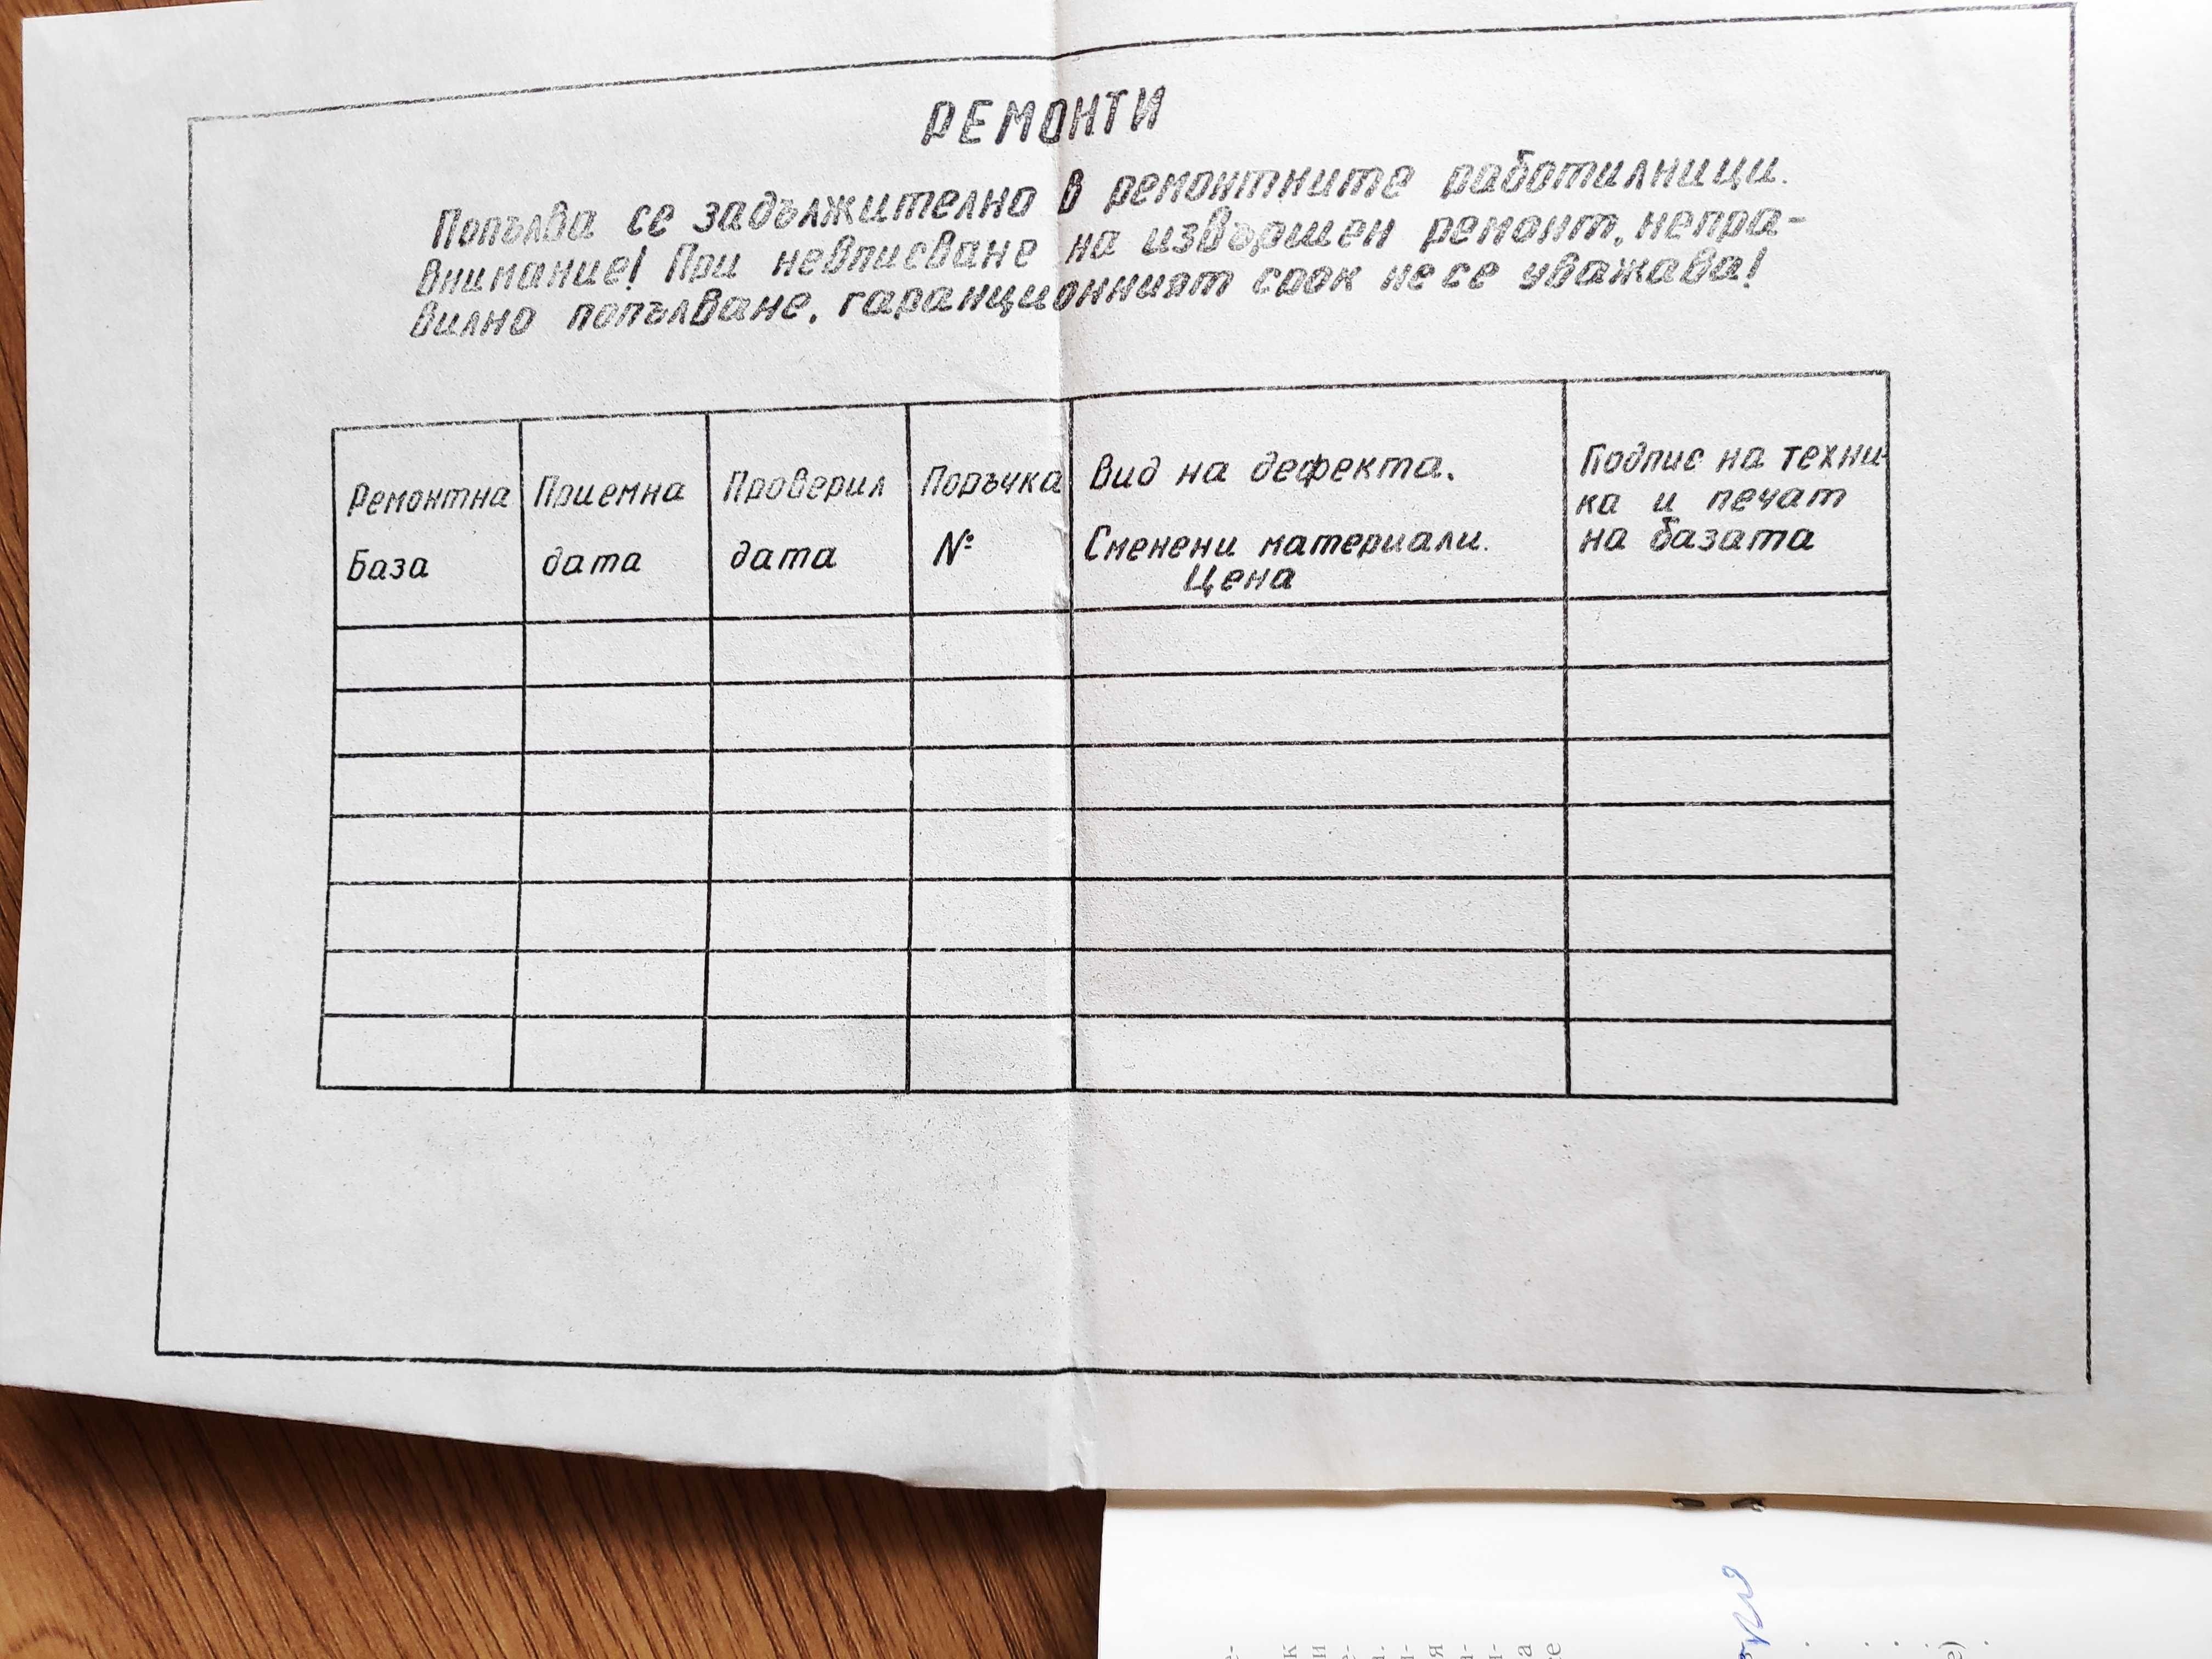 РЕМОНТИ
Попълва се задължително в ремонтните работилници.
Внимание! При невписване на извършен ремонт, непра-
вилно попълване, гаранционният срок не се уважава!
Ремонтна База
Приемна дата
Проверил дата
Поръчка №
Вид на дефекта.
Сменени материали.
Цена
Подпис на техни-
ка и печат
на базата